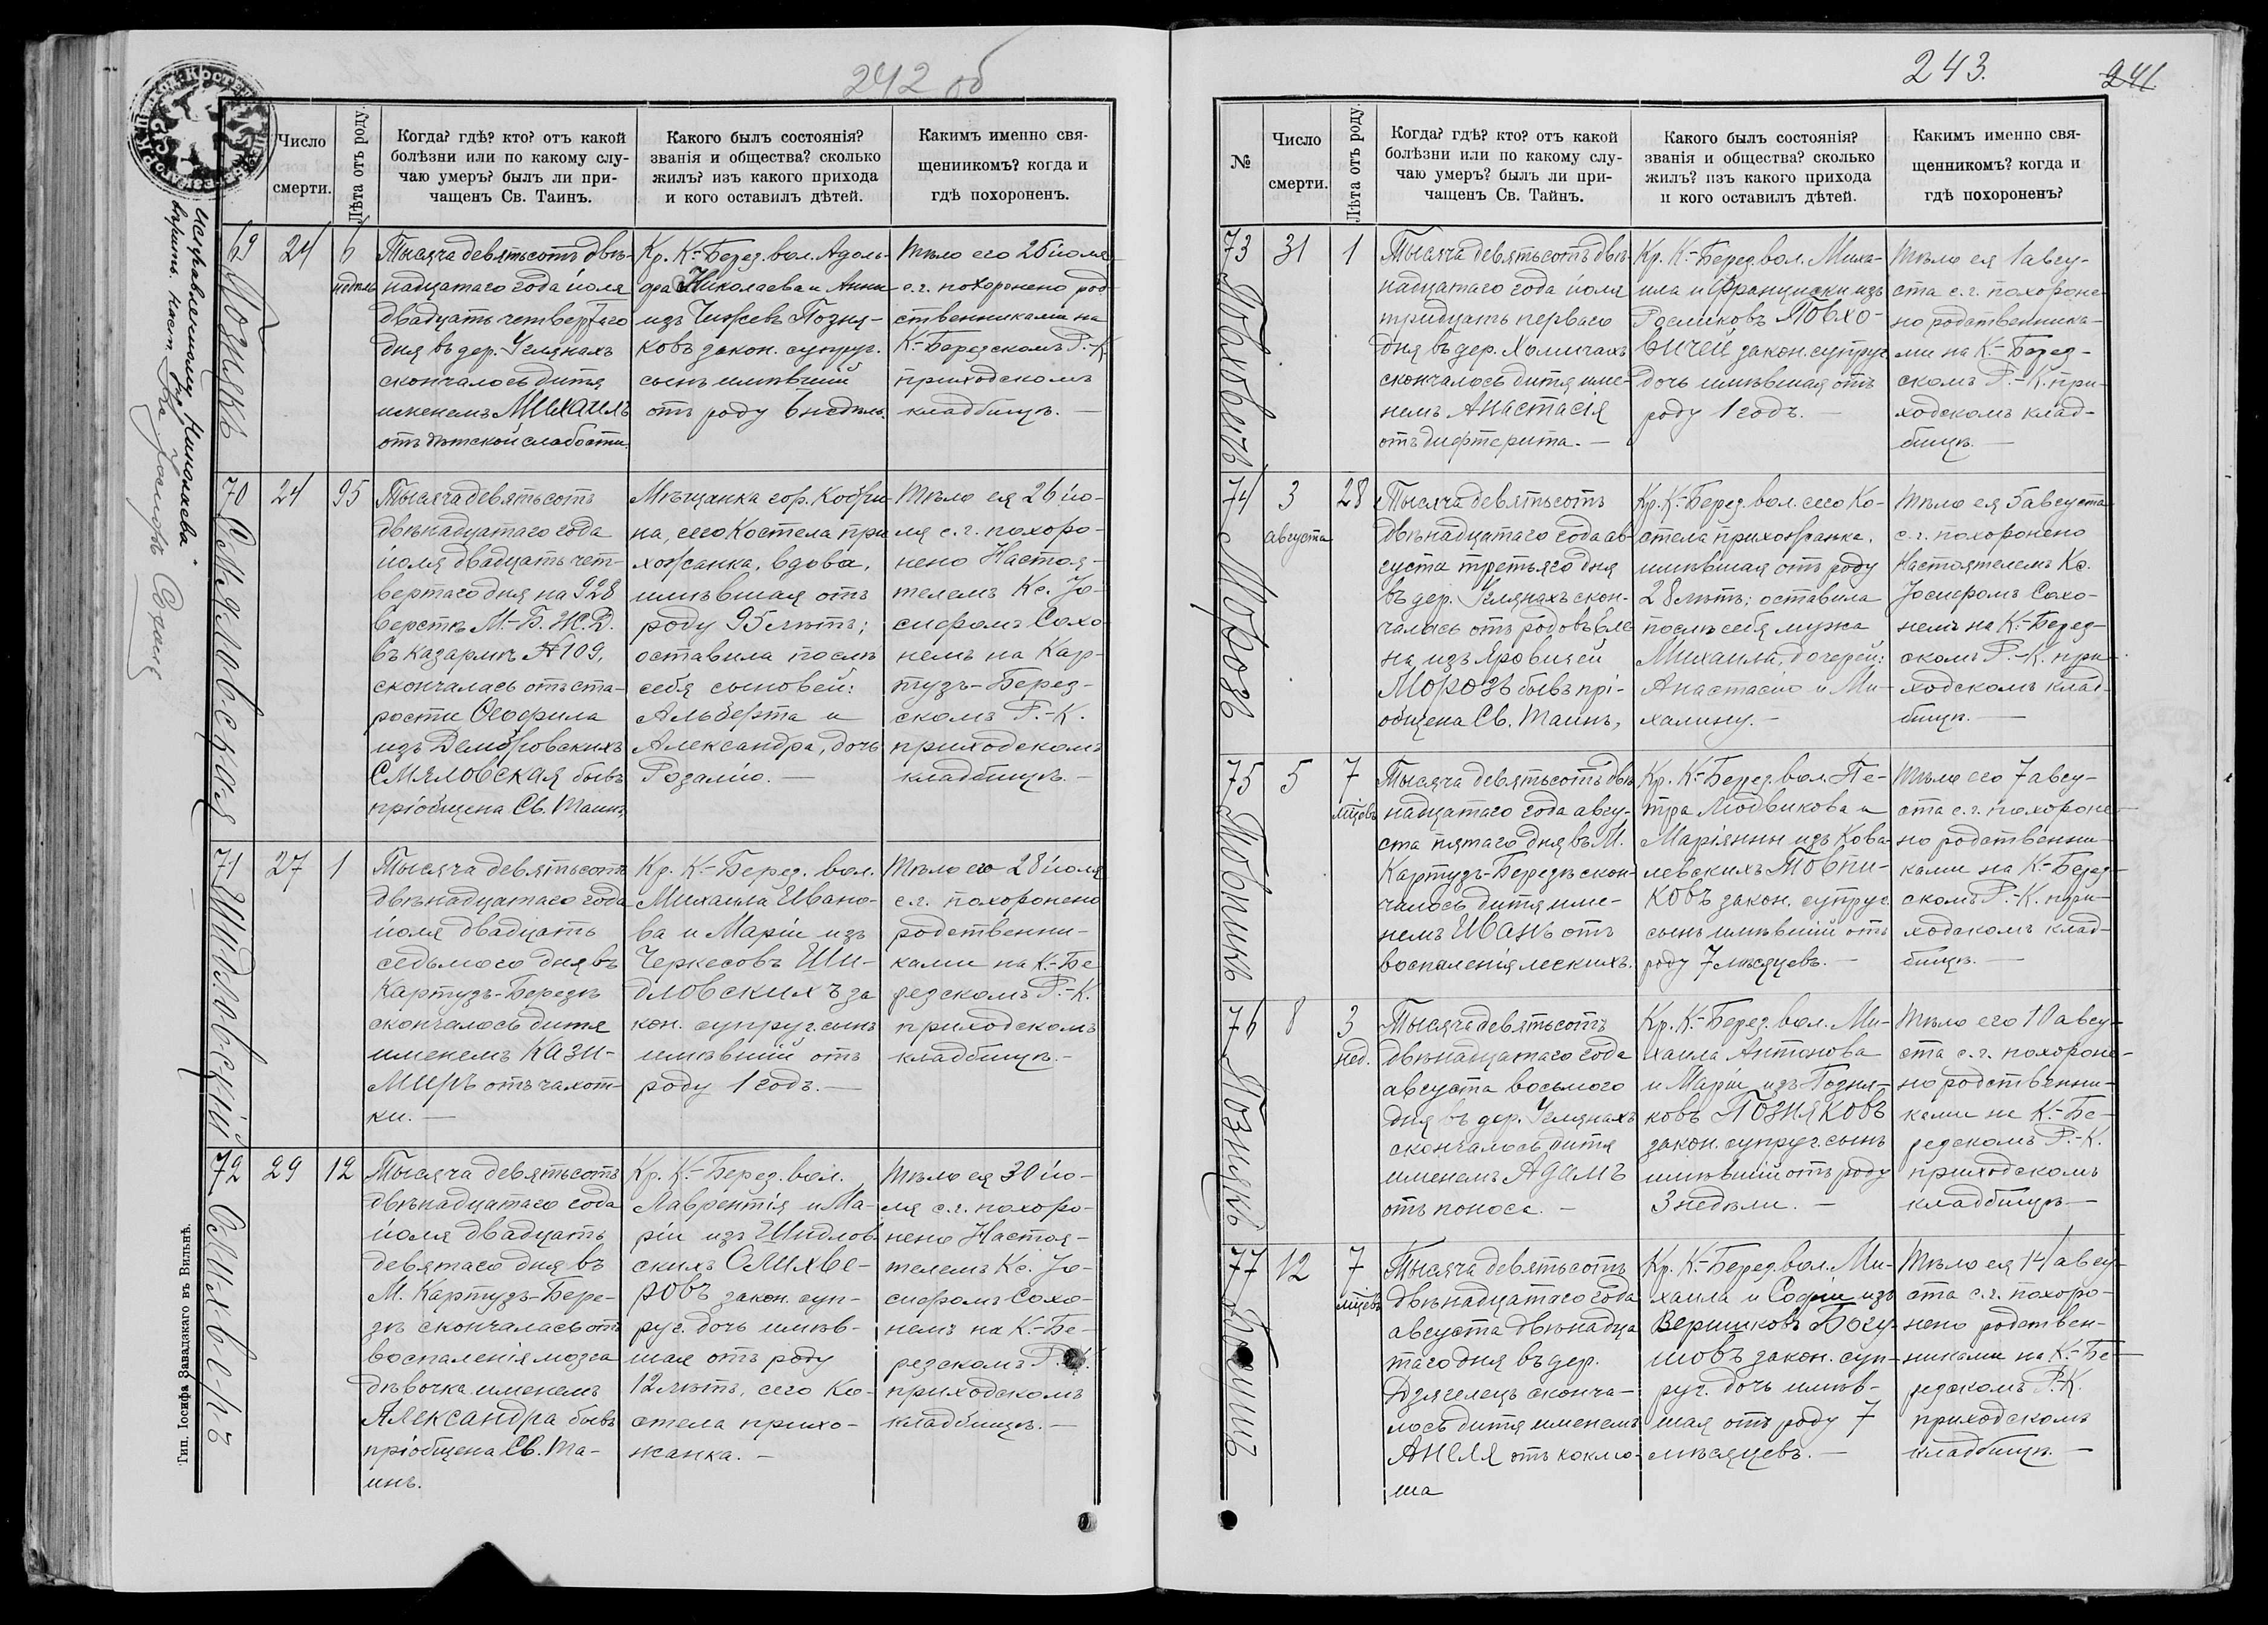 242 об
Число
смерти.
Лѣта отъ роду.
Когда? гдѣ? кто? отъ какой
болѣзни или по какому слу-
чаю умеръ? былъ ли при-
чащенъ Св. Таинъ.
Какого былъ состоянія?
званія и общества? сколько
жилъ? изъ какого прихода
и кого оставилъ дѣтей.
Какимъ именно свя-
щенникомъ? когда и
гдѣ похороненъ.
Исправленному „Николаева“
вѣрить. Наст.
69
Познякъ
24
6
недѣль
Тысяча девятьсотъ двѣ-
надцатаго года іюля
двадцать четвертаго
дня въ дер. Углянахъ
скончалось дитя
именемъ Михаилъ
отъ дѣтской слабости.
Кр. К.-Берез. вол. Адоль-
фа Николаева и Анны
изъ Чижевъ Позня-
ковъ закон. супруг.
сынъ имѣвшій
отъ роду 6 недѣль.
Тѣло его 26 іюля
с.г. похоронено род-
ственниками на
К.-Березскомъ Р.-К.
приходскомъ
кладбищѣ. —
70
Смяловская
24
95
Тысяча девятьсотъ
двѣнадцатаго года
іюля двадцать чет-
вертаго дня на 928
верстѣ М.-Б. Ж.Д.
въ казармѣ № 109,
скончалась отъ ста-
рости Ѳеофила
изъ Домбровскихъ
Смяловская бывъ
пріобщена Св. Таинъ,
Мѣщанка гор. Кобри-
на, сего Костела при
хожанка, вдова,
имѣвшая отъ
роду 95 лѣтъ;
оставила послѣ
себя сыновей:
Альберта и
Александра, дочь
Розалію. —
Тѣло ея 26 ію-
ля с.г. похоро-
нено Настоя-
телемъ Кс. Іо-
сифомъ Сохо-
немъ на Кар-
тузъ-Берез-
скомъ Р.-К.
приходскомъ
кладбищѣ. —
71
Шидловскій
27
1
Тысяча девятьсотъ
двѣнадцатаго года
іюля двадцать
седьмого дня въ
Картузъ-Березѣ
скончалось дитя
именемъ Кази-
миръ отъ чахот-
ки. —
Кр. К.-Берез. вол.
Михаила Ивано-
ва и Маріи изъ
Черкесовъ Ши-
дловскихъ за
кон. супруг. сынъ
имѣвшій отъ
роду 1 годъ. —
Тѣло его 28 іюля
с.г. похоронено
родственни-
ками на К.-Бе
резскомъ Р.-К.
приходскомъ
кладбищѣ. —
72
Олихверъ
29
12
Тысяча девятьсотъ
двѣнадцатаго года
іюля двадцать
девятаго дня въ
М. Картузъ-Бере-
зѣ скончалась отъ
воспаленія мозга
дѣвочка именемъ
Александра бывъ
пріобщена Св. Та-
инъ.
Кр. К.-Берез. вол.
Лаврентія и Ма-
ріи изъ Шидлов-
скихъ Олихве-
ровъ закон. суп-
руг. дочь имѣв-
шая отъ роду
12 лѣтъ, сего Ко-
стела прихо-
жанка. —
Тѣло ея 30 ію-
ля с.г. похоро-
нено Настоя-
телемъ Кс. Іо-
сифомъ Сохо-
немъ на К.-Бе-
резскомъ Р.-К.
приходскомъ
кладбищѣ. —
Тип. Іосифа Завадзкаго въ Вильнѣ.
243.
241
№
Число
смерти.
Лѣта отъ роду.
Когда? гдѣ? кто? отъ какой
болѣзни или по какому слу-
чаю умеръ? былъ ли при-
чащенъ Св. Тайнъ.
Какого былъ состоянія?
званія и общества? сколько
жилъ? изъ какого прихода
и кого оставилъ дѣтей.
Какимъ именно свя-
щенникомъ? когда и
гдѣ похороненъ?
73
Повховичъ
31
1
Тысяча девятьсотъ двѣ-
надцатаго года іюля
тридцать перваго
дня въ дер. Хомичахъ
скончалось дитя име-
немъ Анастасія
отъ дифтерита. —
Кр. К.-Берез. вол. Миха-
ила и Франциски изъ
Росликовъ Повхо-
вичей закон. супруг
дочь имѣвшая отъ
роду 1 годъ. —
Тѣло ея 1 авгу-
ста с.г. похороне-
но родственника-
ми на К.-Берез-
скомъ Р.-К. при-
ходскомъ клад-
бищѣ. —
74
Морозъ
3
августа
28
Тысяча девятьсотъ
двѣнадцатаго года ав-
густа третьяго дня
въ дер. Углянахъ скон-
чалась отъ родовъ Еле
на, изъ Яровичей
Морозъ бывъ прі-
общена Св. Таинъ,
Кр. К.-Берез. вол. сего Ко-
стела прихожанка,
имѣвшая отъ роду
28 лѣтъ; оставила
послѣ себя мужа
Михаила, дочерей:
Анастасію и Ми-
халину. —
Тѣло ея 5 августа
с.г. похоронено
Настоятелемъ Кс.
Іосифомъ Сохо-
немъ на К.-Берез-
скомъ Р.-К. при-
ходскомъ клад-
бищѣ. —
75
Товпикъ
5
7
мѣсцевъ
Тысяча девятьсотъ двѣ
надцатаго года авгу-
ста пятаго дня въ М.
Картузъ-Березѣ скон-
чалось дитя име-
немъ Иванъ отъ
воспаленія легкихъ.
Кр. К.-Берез. вол. Пе-
тра Людвикова и
Маріянны изъ Кова
левскихъ Товпи-
ковъ закон. супруг.
сынъ имѣвшій отъ
роду 7 мѣсяцевъ. —
Тѣло его 7 авгу-
ста с.г. похороне-
но родственни-
ками на К.-Берез-
скомъ Р.-К. при-
ходскомъ клад-
бищѣ. —
76
Познякъ
8
3
нед.
Тысяча девятьсотъ
двѣнадцатаго года
августа восьмого
дня въ дер. Углянахъ
скончалось дитя
именемъ Адамъ
отъ поноса. —
Кр. К.-Берез. вол. Ми-
хаила Антонова
и Маріи изъ Позня-
ковъ Позняковъ
закон. супруг. сынъ
имѣвшій отъ роду
3 недѣли. —
Тѣло его 10 авгу-
ста с.г. похороне-
но родственни-
ками на К.-Бе-
резскомъ Р.-К.
приходскомъ
кладбищѣ —
77
12
7
мѣсцевъ
Тысяча девятьсотъ
двѣнадцатаго года
августа двѣнадца
таго дня въ дер.
Дзягелецъ сконча-
лось дитя именемъ
Анеля отъ коклю-
ша
Кр. К.-Берез. вол. Ми-
хаила и Софіи изъ
Вершиковъ Богу-
шовъ закон. суп-
руг. дочь имѣв-
шая отъ роду 7
мѣсяцевъ. —
Тѣло ея 14 авгу-
ста с.г. похоро-
нено родствен-
никами на К.-Бе-
резскомъ Р.-К.
приходскомъ
кладбищѣ. —